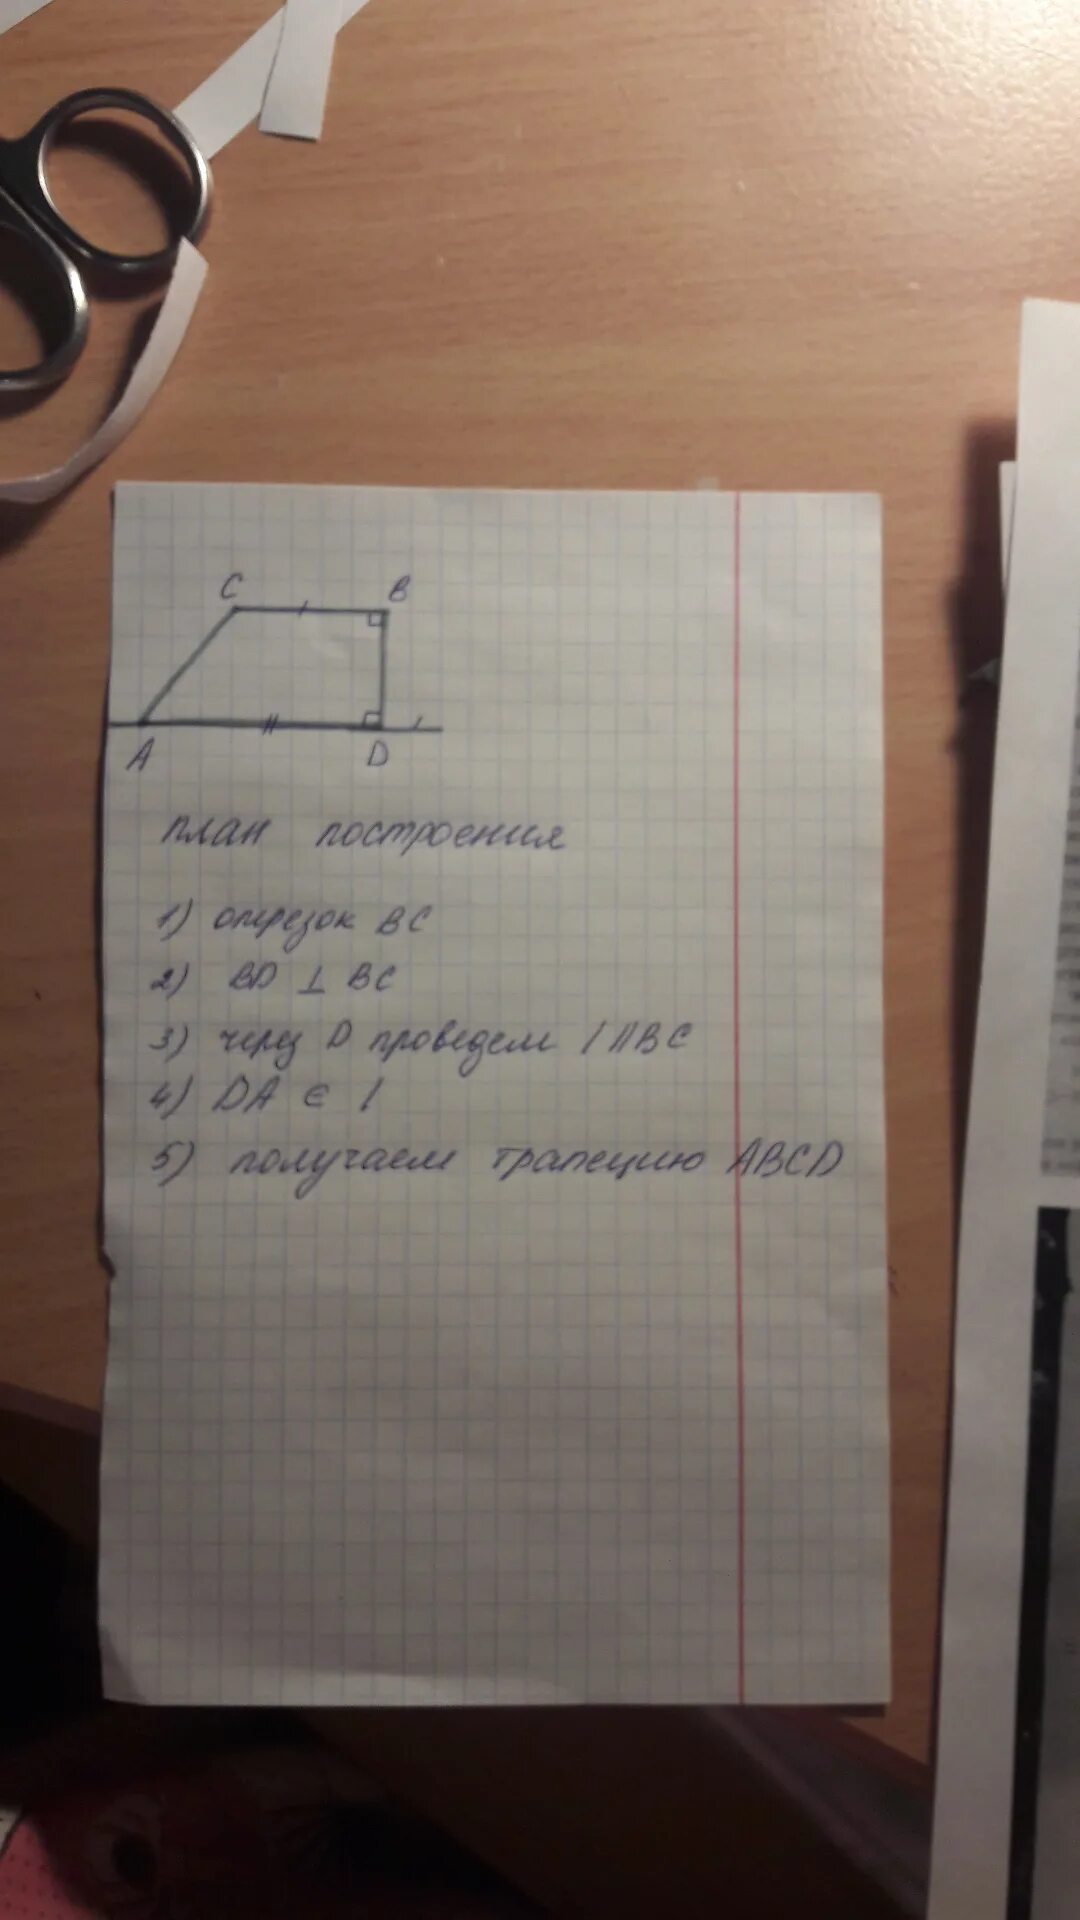 C B
A D
план построения
1) отрезок BC
2) BD ⊥ BC
3) через D проведем l || BC
4) DA ∈ l
5) получаем трапецию ABCD